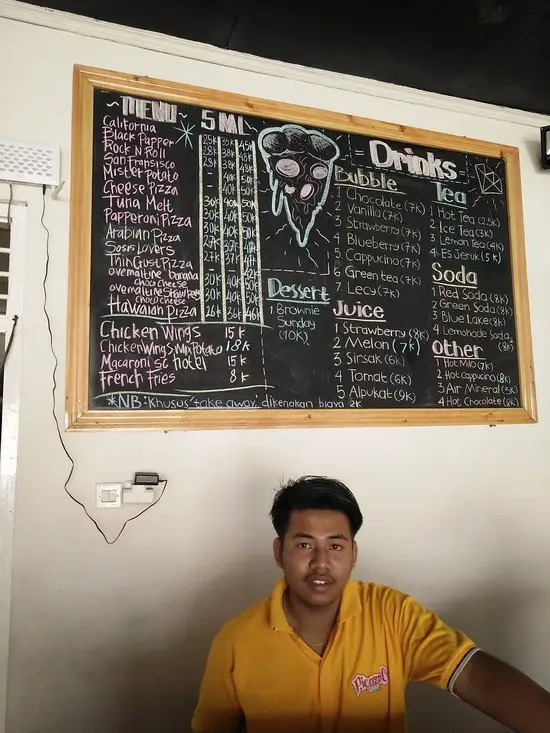 ~MENU~ S M L
California 25K 35K 45K
Black Papper 28K 38K 48K
Rock N Roll 28K 38K 48K
San Fransisco
Mister Potato
Cheese Pizza
Tuna Melt 30K 40K 50K
Papperoni Pizza
Arabian Pizza
Sosis Lovers
Thin Crust Pizza
ovemaltine banana
choco cheese
ovemaltine
choco cheese
Hawaiian Pizza 26K 36K 46K
Chicken Wings 15K
Chicken Wings Mix Potato 18K
Macaroni SC hotel 15K
French Fries 8K
*NB: Khusus 'take away' dikenakan biaya 2K
Dessert
1 Brownie
Sunday
(10K)
=Drinks=
Bubble
1 Chocolate (7K)
2 Vanilla (7K)
3 Strawberry (7K)
4 Blueberry (7K)
5 Cappucino (7K)
6 Green tea (7K)
7 Lecy (7K)
Juice
1 Strawberry (8K)
2 Melon (7K)
3 Sirsak (6K)
4 Tomat (6K)
5 Alpukat (9K)
Tea
1 Hot Tea (2.5K)
2 Ice Tea (3K)
3 Lemon Tea (4K)
4 Es Jeruk (5K)
Soda
1 Red Soda (8K)
2 Green Soda (8K)
3 Blue Lake (8K)
4 Lemonade Soda
(8K)
Other
1 Hot Milo (7K)
2 Hot Cappucino (8K)
3 Air Mineral (3K)
4 Hot Chocolate (8K)